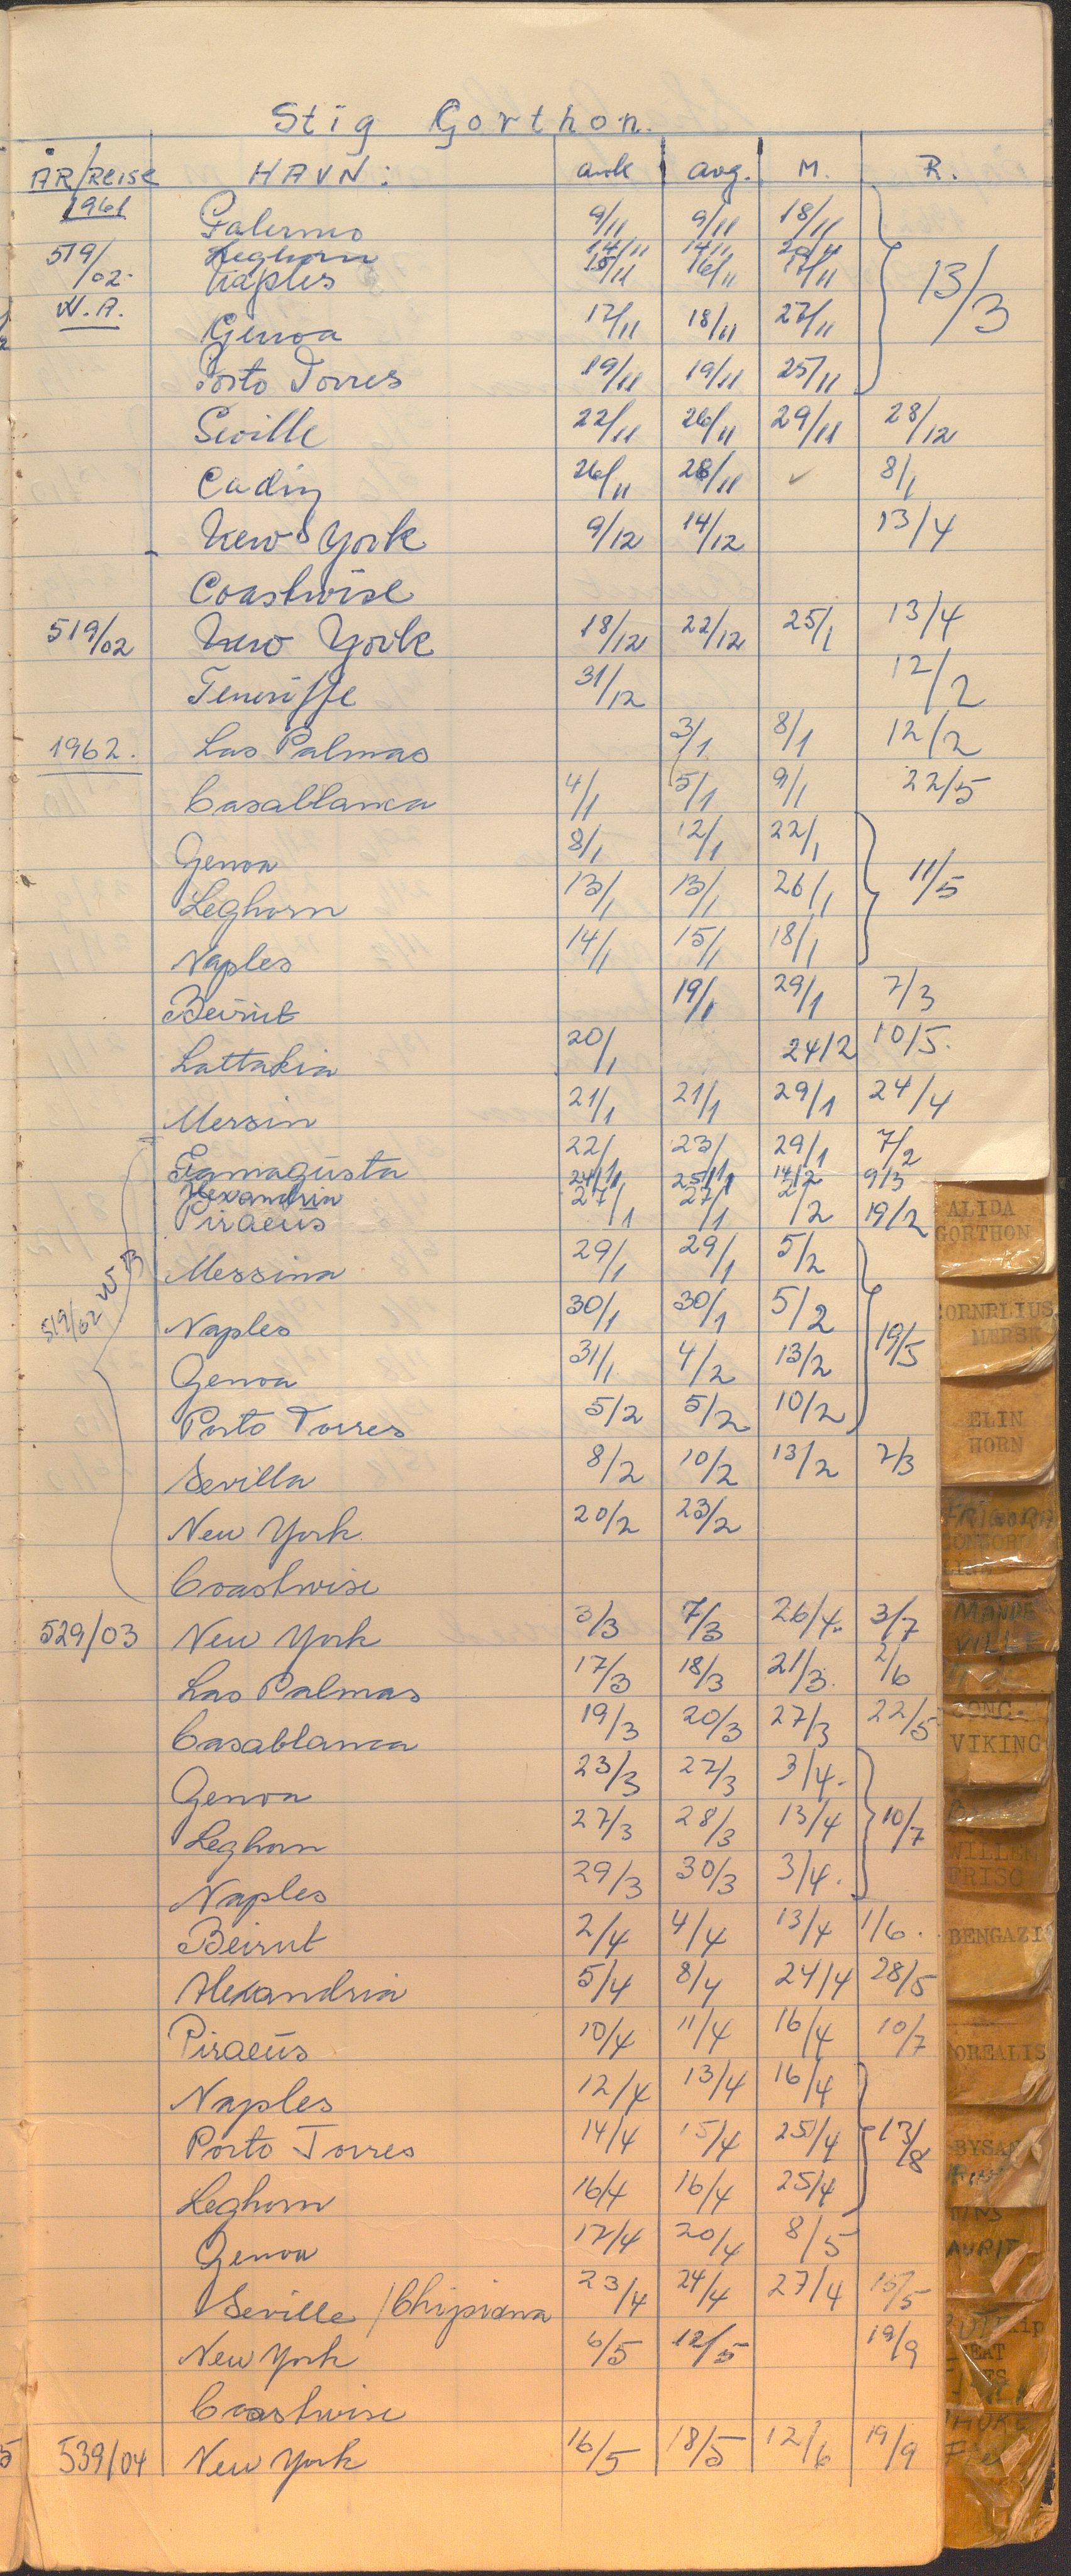 Stig Gorthon.
ÅR/Reise HAVN: ank avg. M. R.
1961 Palermo 9/11 9/11 18/11
519/02 Leghorn 14/11 14/11 20/11
Naples 15/11 16/11 17/11 13/3
W.A. Genoa 17/11 18/11 27/11
Porto Torres 19/11 19/11 25/11
Seville 22/11 26/11 29/11 28/12
Cadiz 26/11 28/11 ✓ 8/1
New York 9/12 14/12 13/4
Coastwise
519/02 New York 18/12 22/12 25/1 13/4
Teneriffe 31/12 12/2
1962. Las Palmas 3/1 8/1 12/2
Casablanca 4/1 5/1 9/1 22/5
Genoa 8/1 12/1 22/1
Leghorn 13/1 13/1 26/1 11/5
Naples 14/1 15/1 18/1
Beirut 19/1 29/1 7/3
Lattakia 20/1 24/2 10/5.
Mersin 21/1 21/1 29/1 24/4
Famagusta 22/1 23/1 29/1 7/2
Alexandria 24/1 25/1 14/2 9/3
Piraeus 27/1 27/1 2/2 19/2
Messina 29/1 29/1 5/2
519/62 WB Naples 30/1 30/1 5/2 19/5
Genoa 31/1 4/2 13/2
Porto Torres 5/2 5/2 10/2
Sevilla 8/2 10/2 13/2 2/3
New York 20/2 23/2
Coastwise
529/03 New York 3/3 7/3 26/4. 3/7
Las Palmas 17/3 18/3 21/3. 2/6
Casablanca 19/3 20/3 27/3 22/5
Genoa 23/3 27/3 3/4.
Leghorn 27/3 28/3 13/4 10/7
Naples 29/3 30/3 3/4.
Beirut 2/4 4/4 13/4 1/6.
Alexandria 5/4 8/4 24/4 28/5
Piraeus 10/4 11/4 16/4 10/7
Naples 12/4 13/4 16/4
Porto Torres 14/4 15/4 25/4 13/8
Leghorn 16/4 16/4 25/4
Genoa 17/4 20/4 8/5
Seville / Chipiona 23/4 24/4 27/4 15/5
New York 6/5 12/5 19/9
Coastwise
539/04 New York 16/5 18/5 12/6 19/9
ALIDA
GORTHON
CORNELIUS
MERSK
ELIN
HORN
MANDE
VILLE
VIKING
WILLEM
FRISO
BENGAZI
OREALIS